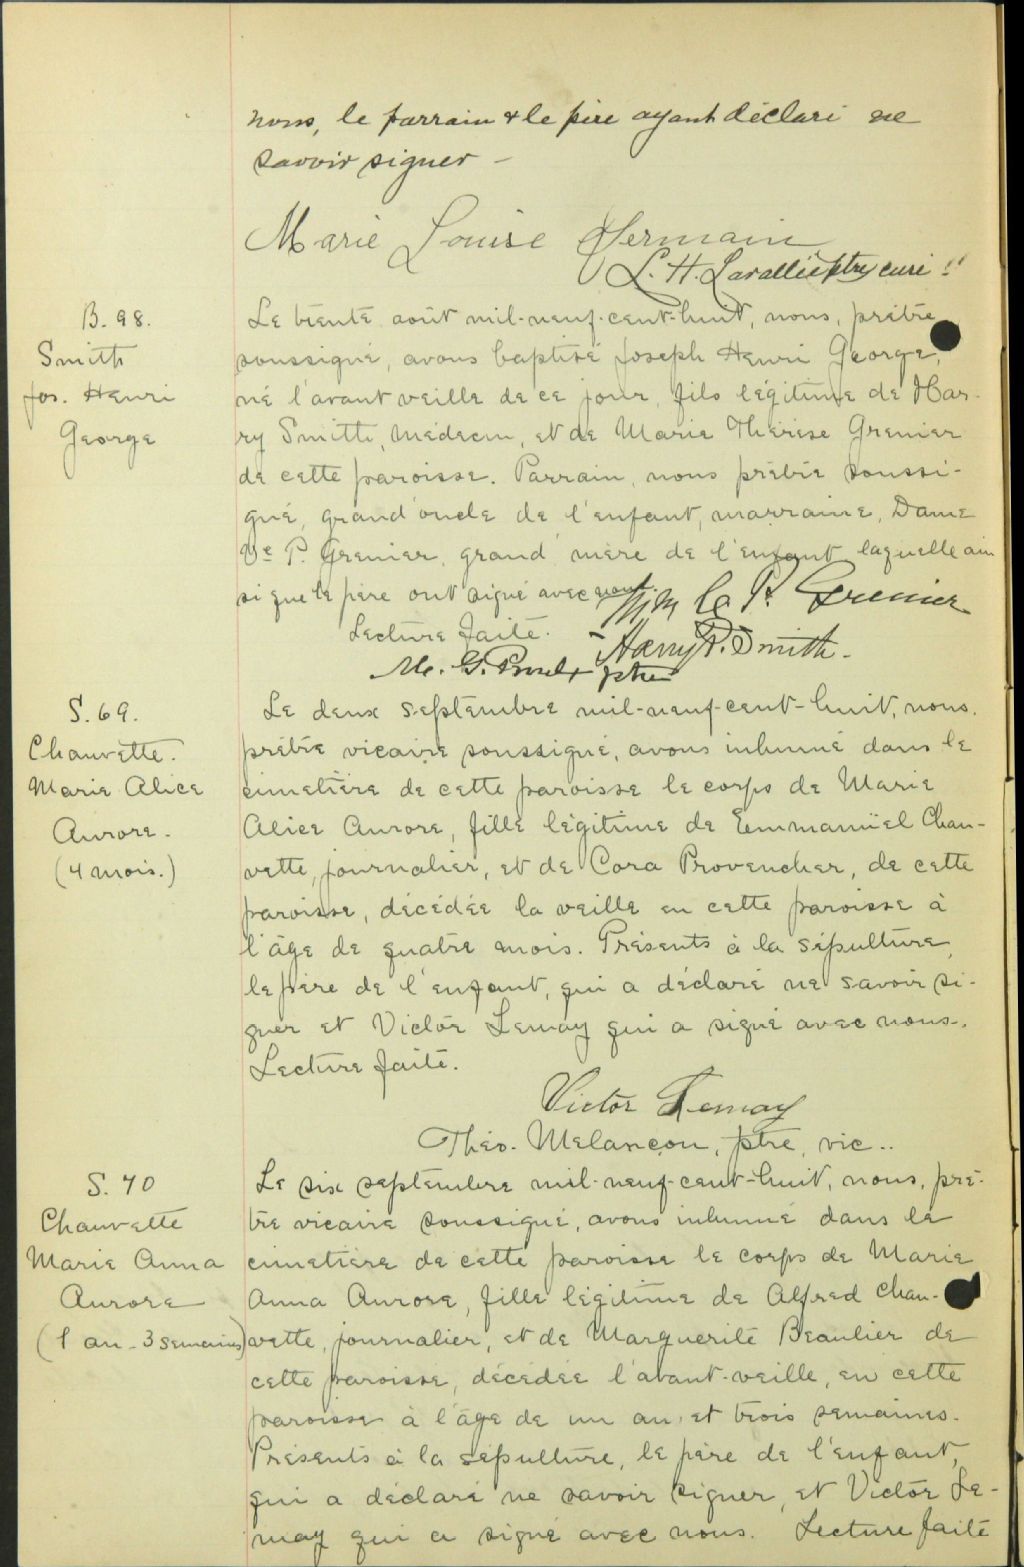 nous, le parrain & le père ayant déclaré ne
savoir signer -
Marie Louise Germain
L. H. Lavallée ptre curé
B. 98.
Smith
Jos. Henri
George
Le trente août mil-neuf-cent-huit, nous, prêtre
soussigné, avons baptisé Joseph Henri George,
né l'avant veille de ce jour, fils légitime de Har-
ry Smith, médecin, et de Marie Thérèse Grenier
de cette paroisse. Parrain, nous prêtre soussi-
gné, grand'oncle de l'enfant, marraine, Dame
Ve P. Grenier, grand'mère de l'enfant laquelle ain
si que le père ont signé avec nous.
P. Grenier
Lecture faite.
Harry P. Smith.
M. G. Proulx ptre
S. 69.
Chauvette.
Marie Alice
Aurore.
(4 mois.)
Le deux septembre mil-neuf-cent-huit, nous,
prêtre vicaire soussigné, avons inhumé dans le
cimetière de cette paroisse le corps de Marie
Alice Aurore, fille légitime de Emmanüel Chau-
vette, journalier, et de Cora Provencher, de cette
paroisse, décédée la veille en cette paroisse à
l'âge de quatre mois. Présents à la sépulture,
le père de l'enfant, qui a déclaré ne savoir si-
gner et Victor Lemay qui a signé avec nous.
Lecture faite.
Victor Lemay
Théo. Melançon, ptre, vic..
S. 70
Chauvette
Marie Anna
Aurore
(1 an - 3 semaines)
Le six septembre mil-neuf-cent-huit, nous, prê-
tre vicaire soussigné, avons inhumé dans le
cimetière de cette paroisse le corps de Marie
Anna Aurore, fille légitime de Alfred Chau-
vette, journalier, et de Marguerite Beaulier de
cette paroisse, décédée l'avant-veille, en cette
paroisse à l'âge de un an et trois semaines.
Présents à la sépulture, le père de l'enfant,
qui a déclaré ne savoir signer, et Victor Le-
may qui a signé avec nous. Lecture faite